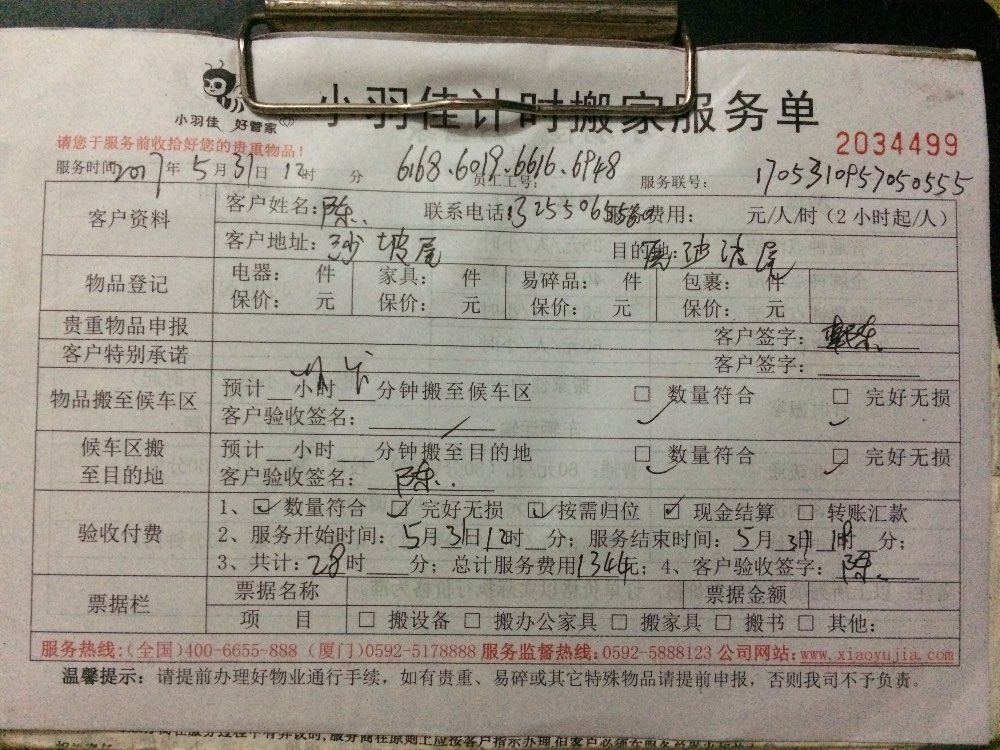 小羽佳计时搬家服务单
小羽佳 好管家
请您于服务前收拾好您的贵重物品!
2034499
服务时间2017年5月31日12时 分 6168.6019.6616.6948 员工工号: 服务联号: 1705310957050555
客户资料 客户姓名:陈. 联系电话: 服务费用: 元/人/时(2小时起/人)
客户地址:沙坡尾 目的地:
物品登记 电器: 件 家具: 件 易碎品: 件 包裹: 件
保价: 元 保价: 元 保价: 元 保价: 元
贵重物品申报 客户签字:
客户特别承诺 客户签字:
物品搬至候车区 预计__小时__分钟搬至候车区 □ 数量符合 □ 完好无损
客户验收签名:
候车区搬至目的地 预计__小时__分钟搬至目的地 □ 数量符合 □ 完好无损
客户验收签名: 陈..
验收付费 1、☑数量符合 ☑完好无损 ☑按需归位 ☑现金结算 □转账汇款
2、服务开始时间: 5月31日12时__分; 服务结束时间: 5月31日 时__分;
3、共计:28时__分; 总计服务费用1344元; 4、客户验收签字: 陈.
票据栏 票据名称 票据金额
项 目 □ 搬设备 □ 搬办公家具 □ 搬家具 □ 搬书 □ 其他:
服务热线:(全国)400-6655-888 (厦门)0592-5178888 服务监督热线:0592-5888123 公司网站:www.xiaoyujia.com
温馨提示: 请提前办理好物业通行手续,如有贵重、易碎或其它特殊物品请提前申报,否则我司不予负责。